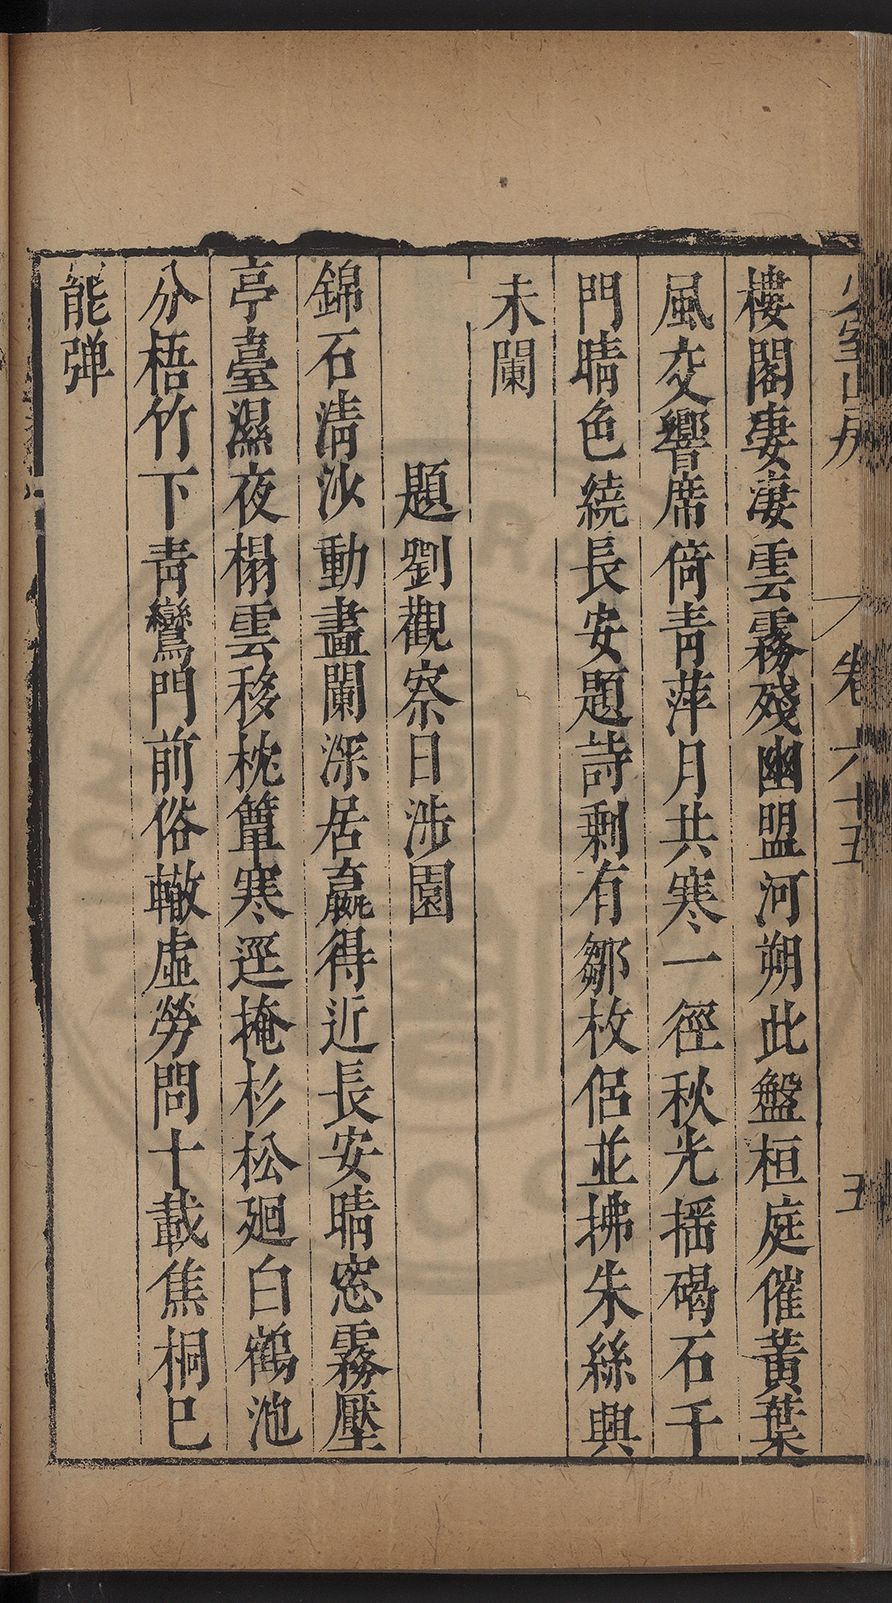 少室山房
卷六十五
五
樓閣妻淒雲霧殘幽盟河朔此盤桓庭催黃葉
風交響席倚青萍月共寒一徑秋光搖碣石千
門晴色繞長安題詩剩有鄒枚侶並拂朱絲興
未闌
題劉觀察日涉園
錦石清沙動畫闌深居贏得近長安晴窓霧壓
亭臺濕夜榻雲移枕簟寒逕掩杉松廻白鶴池
分梧竹下青鸞門前俗轍虛勞問十載焦桐巳
能弹